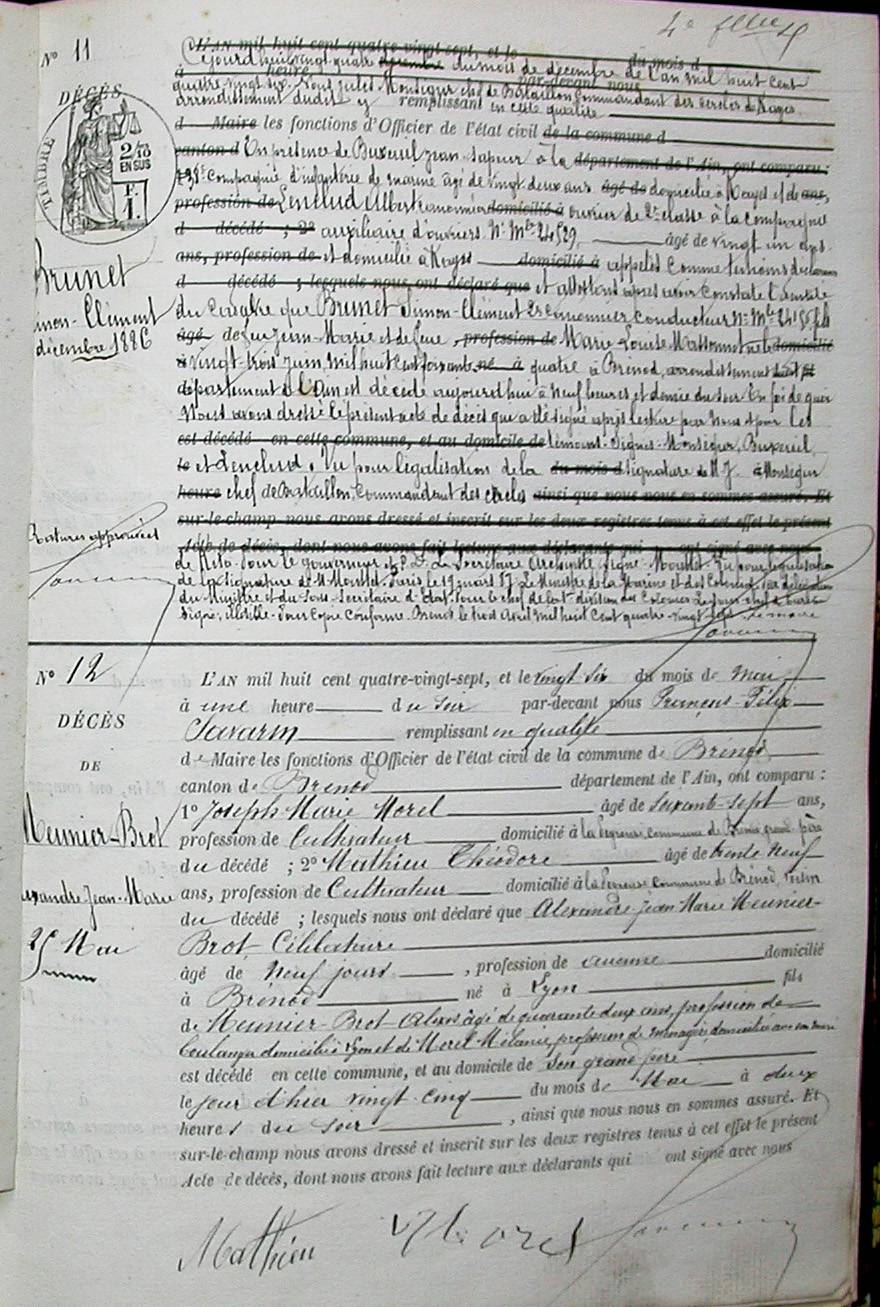 4e feuillet
N° 11
DÉCÈS
TIMBRE
2/10
EN SUS
F.
1.
Brunet
Simon-Clément
décembre 1886
Ratures approuvées
L'AN mil huit cent quatre-vingt-sept, et le du mois d
Cejourd'hui vingt quatre du mois de décembre de l'an mil huit cent
à heure par-devant nous
quatre vingt six. Nous Jules Monségur chef de Bataillon Commandant des cercles de Kayes
arrondissement dudit remplissant en cette qualité
d Maire les fonctions d'Officier de l'état civil de la commune d
canton d En présence de Buxeuil Jean, sapeur à la département de l'Ain, ont comparu :
Compagnie d'infanterie de marine âgé de vingt deux ans âgé de domicilié à Kayes et de ans,
profession de Lenclud Albert domicilié à ouvrier de 2e classe à la compagnie
d décédé ; 2° auxiliaire d'ouvriers N° Mle 24529, âgé de vingt un ans
ans, profession de et domicilié à Kayes domicilié à appelés comme témoins
d décédé ; lesquels nous ont déclaré que et attestons après avoir constaté l'identité
du cadavre que Brunet Simon-Clément 2e canonnier conducteur N° Mle fils
âgé de feu Jean-Marie et de feue profession de Marie-Louise né le domicilié
à vingt-trois Juin, mil huit cent soixante né à quatre à Brénod, arrondissement
département de l'Ain est décédé aujourd'hui à neuf heures et demie du soir En foi de quoi
Nous avons dressé le présent acte de décès qui a été signé après lecture par Nous et par les
est décédé en cette commune, et au domicile de témoins. Signés Monségur, Buxeuil,
le et Lenclud. Vu pour légalisation de la du mois d signature de M J. Monségur
heure chef de Bataillon, Commandant des cercles ainsi que nous nous en sommes assuré. Et
sur-le-champ nous avons dressé et inscrit sur les deux registres tenus à cet effet le présent
Acte de décès, dont nous avons fait lecture aux déclarants qui ont signé avec nous
de Kita. Pour le gouverneur et P. O. Le Secrétaire Archiviste Signé Mouttet. Vu pour légalisation
de la signature de M Mouttet. Paris le 17 mars 87. Le Ministre de la Marine et des Colonies, par délégation
du Ministre et du Sous-Secrétaire d'Etat. Pour le chef de la 1re division des Colonies Le Sous-chef de bureau
Signé, Pour Copie Conforme. Brénod, le trois Avril mil huit Cent quatre-vingt sept. Le maire
Savarin
N° 12
DÉCÈS
DE
Meunier-Brot
Alexandre Jean-Marie
25 Mai
L'AN mil huit cent quatre-vingt-sept, et le vingt six du mois de Mai
à une heure du soir par-devant nous François-Félix
Savarin remplissant en qualité
de Maire les fonctions d'Officier de l'état civil de la commune de Brénod
canton de Brénod département de l'Ain, ont comparu :
1° Joseph-Marie Morel âgé de soixante-sept ans,
profession de Cultivateur domicilié à la commune de Brénod grand-père
du décédé ; 2° Mathieu Théodore âgé de trente neuf
ans, profession de Cultivateur domicilié à la commune de Brénod, voisin
du décédé ; lesquels nous ont déclaré que Alexandre Jean Marie Meunier-
Brot, Célibataire
âgé de neuf jours , profession de aucune domicilié
à Brénod né à Lyon fils
de Meunier-Brot Alexis âgé de quarante deux ans, profession de
boulanger domicilié à Lyon et de Morel Mélanie, profession de ménagère, domiciliée avec son mari
est décédé en cette commune, et au domicile de son grand père
le jour d'hier vingt-cinq du mois de Mai à deux
heures du soir , ainsi que nous nous en sommes assuré. Et
sur-le-champ nous avons dressé et inscrit sur les deux registres tenus à cet effet le présent
Acte de décès, dont nous avons fait lecture aux déclarants qui ont signé avec nous
Mathieu Morel Savarin